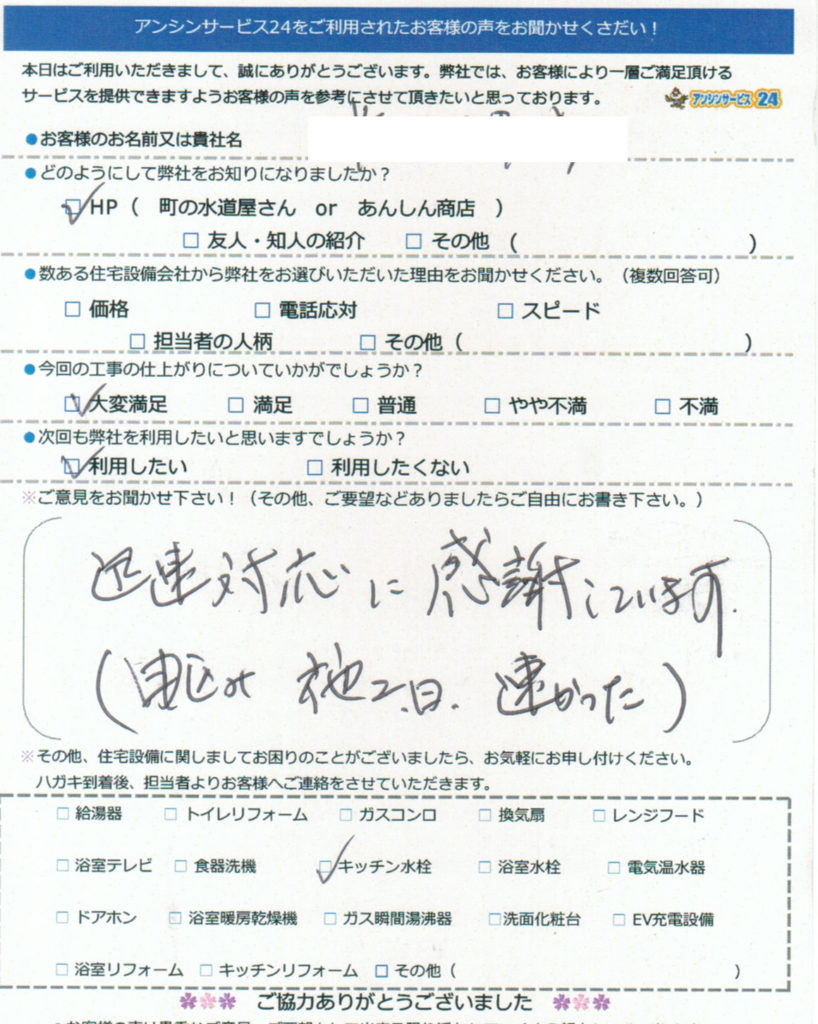 アンシンサービス24をご利用されたお客様の声をお聞かせくさだい！
本日はご利用いただきまして、誠にありがとうございます。弊社では、お客様により一層ご満足頂ける
サービスを提供できますようお客様の声を参考にさせて頂きたいと思っております。
アンシンサービス24
●お客様のお名前又は貴社名
●どのようにして弊社をお知りになりましたか？
☑HP（　町の水道屋さん　or　あんしん商店　）
□ 友人・知人の紹介　□ その他　（　）
●数ある住宅設備会社から弊社をお選びいただいた理由をお聞かせください。（複数回答可）
□ 価格　□ 電話応対　□ スピード
□ 担当者の人柄　□ その他（　）
●今回の工事の仕上がりについていかがでしょうか？
☑大変満足　□ 満足　□ 普通　□ やや不満　□ 不満
●次回も弊社を利用したいと思いますでしょうか？
☑利用したい　□ 利用したくない
※ご意見をお聞かせ下さい！（その他、ご要望などありましたらご自由にお書き下さい。）
迅速対応に感謝しています.
(申込み 速かった)
※その他、住宅設備に関しましてお困りのことがございましたら、お気軽にお申し付けください。
ハガキ到着後、担当者よりお客様へご連絡をさせていただきます。
□ 給湯器　□ トイレリフォーム　□ ガスコンロ　□ 換気扇　□ レンジフード
□ 浴室テレビ　□ 食器洗機　☑キッチン水栓　□ 浴室水栓　□ 電気温水器
□ ドアホン　□ 浴室暖房乾燥機　□ ガス瞬間湯沸器　□洗面化粧台　□ EV充電設備
□ 浴室リフォーム　□ キッチンリフォーム　□ その他（　）
ご協力ありがとうございました